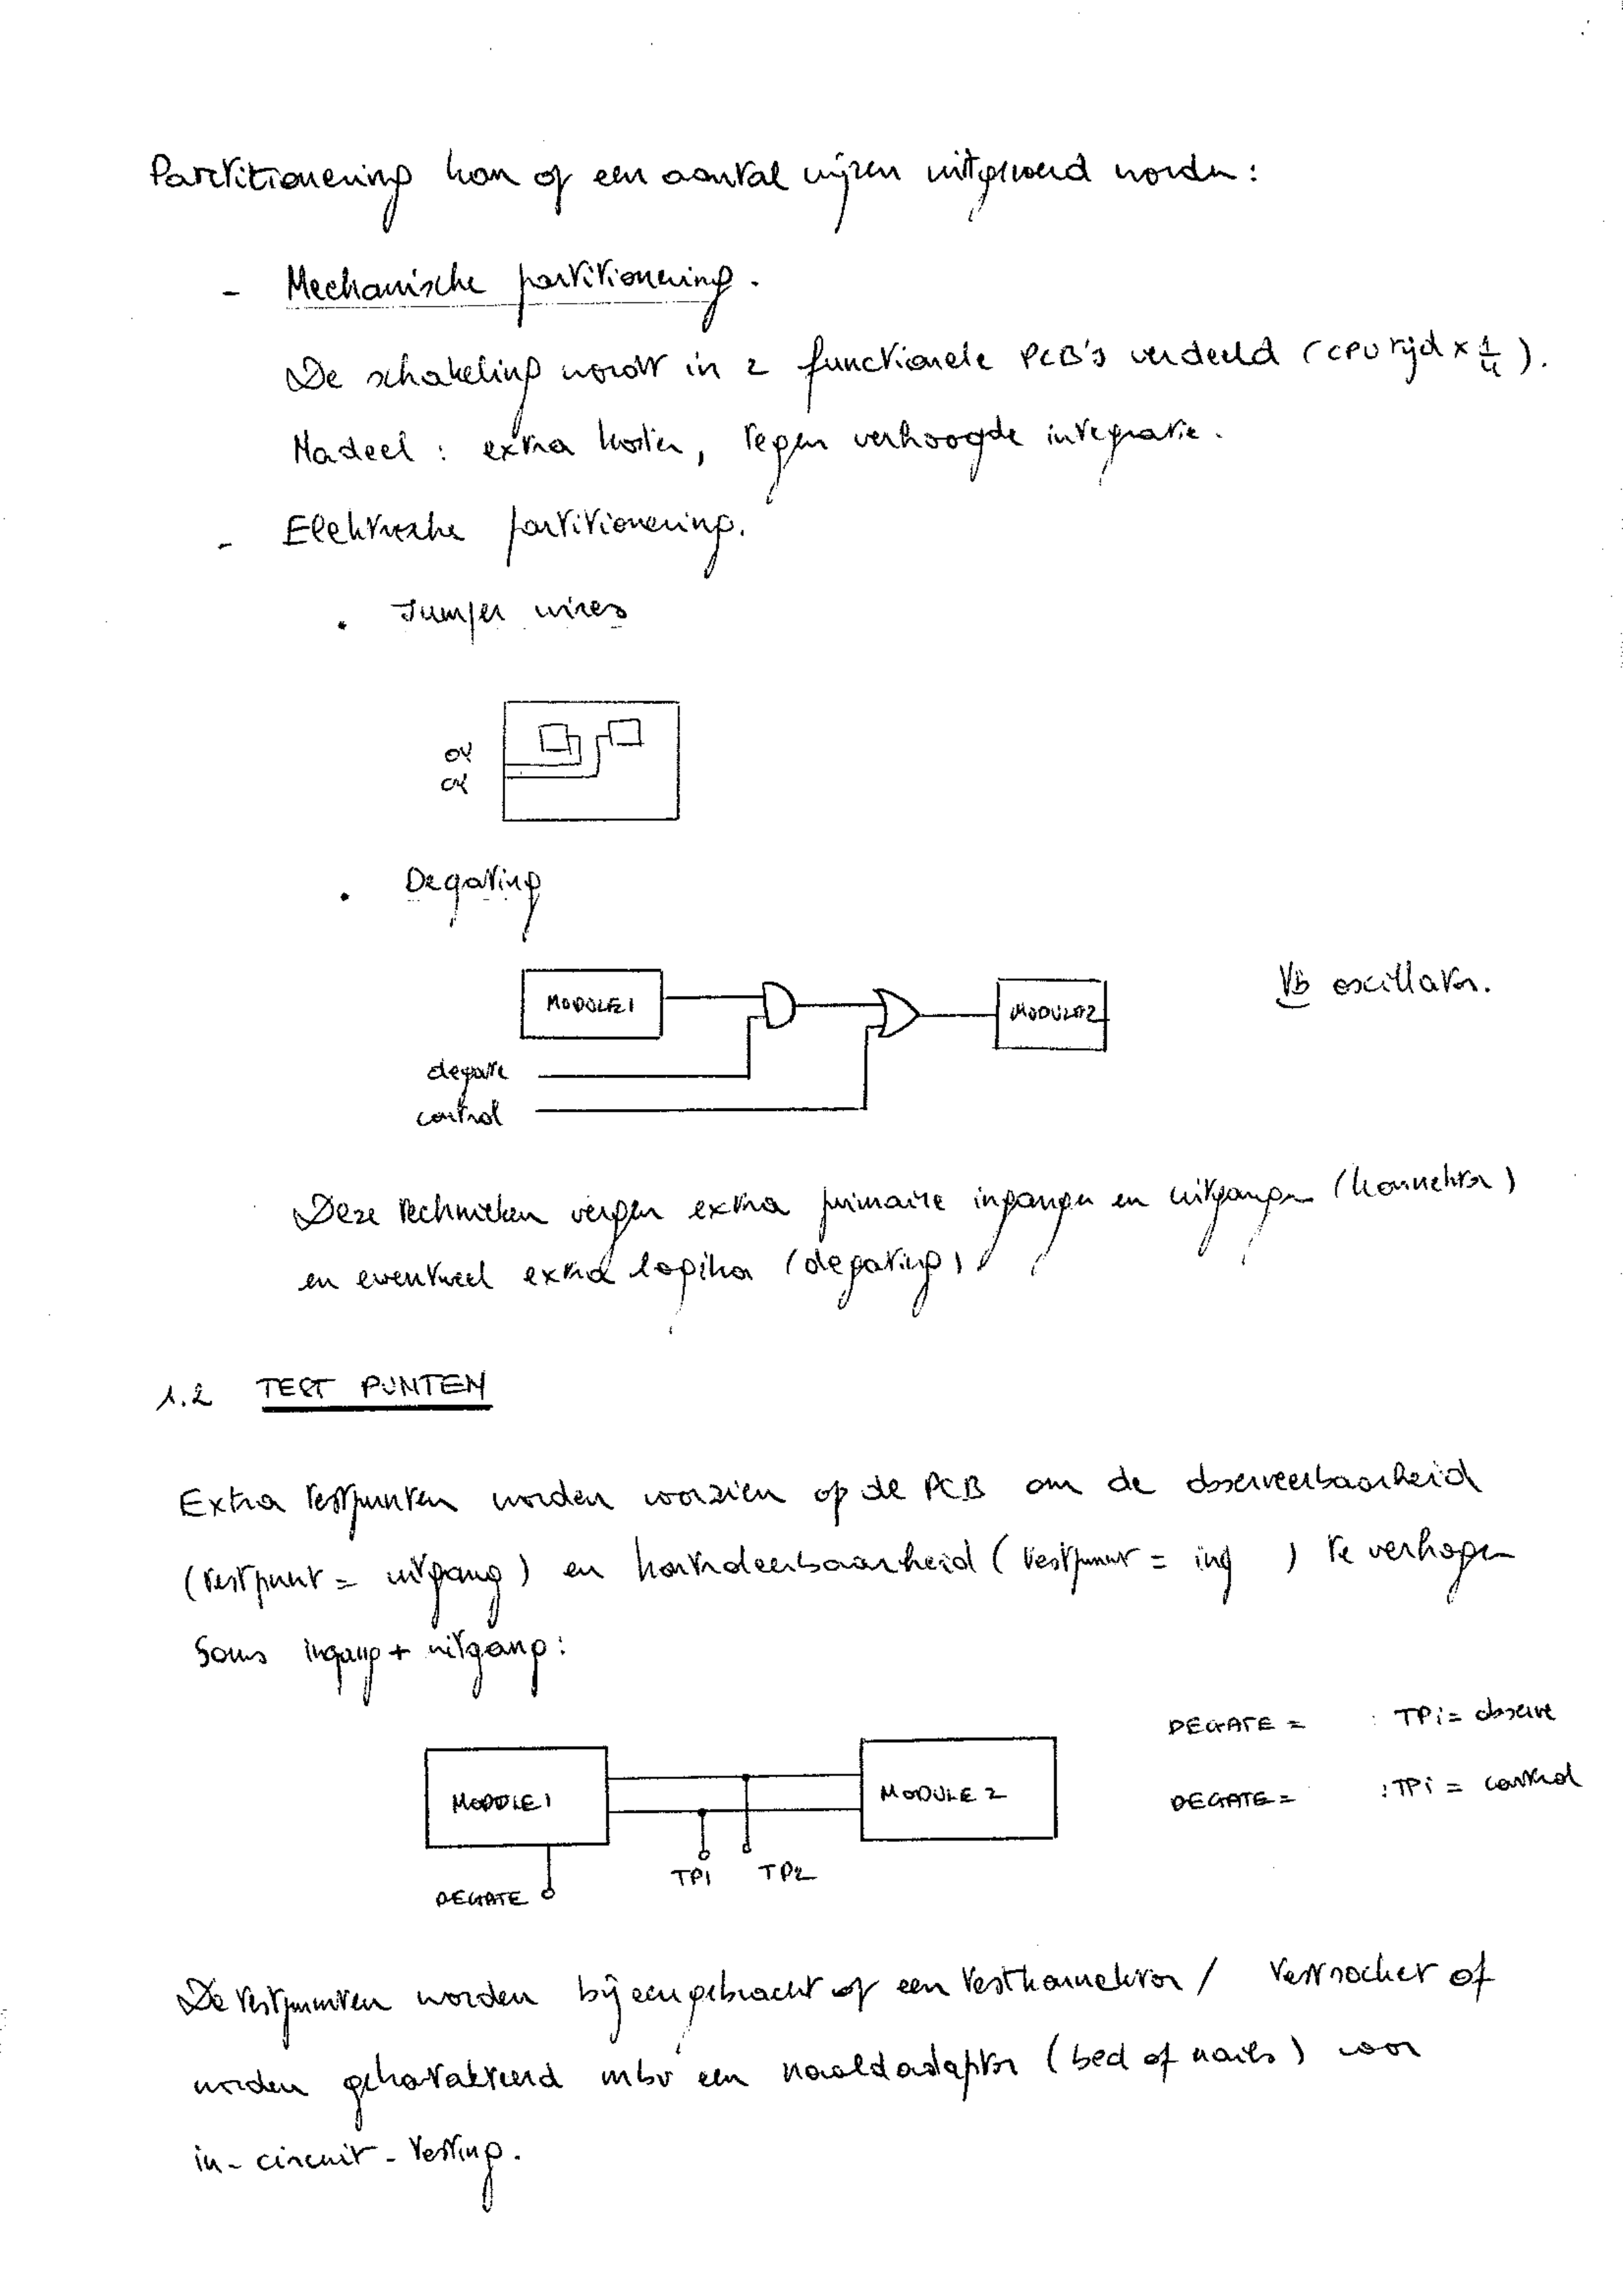 Partitionering kan op een aantal wijzen uitgevoerd worden:
- Mechanische partitionering.
De schakeling wordt in 2 functionele PCB's verdeeld (CPU tijd x 1/4).
Nadeel : extra kosten, tegen verhoogde integratie.
- Elektrische partitionering.
. Jumper wires
. Degating
MODULE1
MODULE2
Vb oscillator.
degate
control
Deze technieken vergen extra primaire ingangen en uitgangen (konnektor)
en eventueel extra logika (degating)
1.2 TEST PUNTEN
Extra testpunten worden voorzien op de PCB om de observeerbaarheid
(testpunt = uitgang) en kontroleerbaarheid (testpunt = ing ) te verhogen
Soms ingang + uitgang:
DEGATE = : TPi = observe
MODULE1
MODULE 2
DEGATE = : TPi = control
TP1 TP2
DEGATE
De testpunten worden bijeengebracht op een testkonnektor / testsocket of
worden gekontakteerd mbv een naaldadaptor (bed of nails) voor
in-circuit-testing.